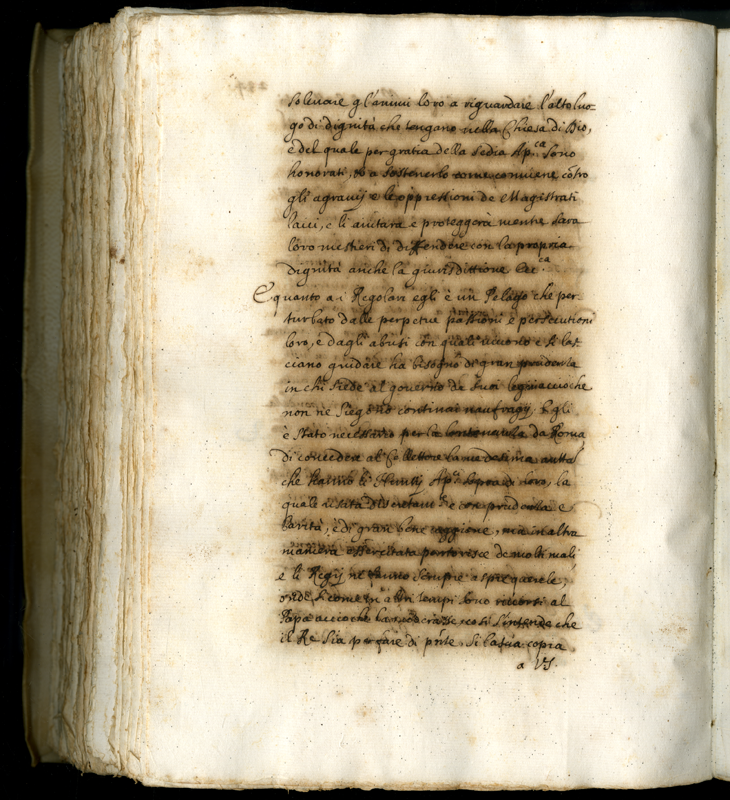 solleuare gl'animi loro a riguardare l'alto luo-
go di dignità che tengano nella Chiesa di Dio,
e del quale per gratia della Sedia Ap.ca sono
honorati, a sostenerlo come conuiene cõtro
gli agrauij e le oppressioni de Magistrati
laici, e li aiutarà e proteggerà mentre sarà
loro mestieri di diffendere con la propria
dignità anche la giurisdittione Ecc.ca
E quanto a i Regolari egli è un Pelago che per
turbato dalle perpetue passioni e persecutioni
loro, e dagli abusi con quali uiuono e si las
ciano guidare ha bisogno di gran prudenza
in chi siede al gouerno de suoi legni accioche
non ne siegano continui naufragij. Egli
è stato necessario per la da Roma
di concedere al Collettore la medesima autta
che hanno li Nuntij Ap.ci sopra di loro, la
quale usata discretam.te e con prudenza e
carità, è di gran bene caggione, ma in altra
maniera essercitata partorisce de molti mali
e li Regij ne fanno sempre aspre querele,
onde si come in altri tempi sono ricorsi al
Papa accioche la moderasse cosi s'intende che
il Re sia per fare di pñte. Si la sua copia
a VS.